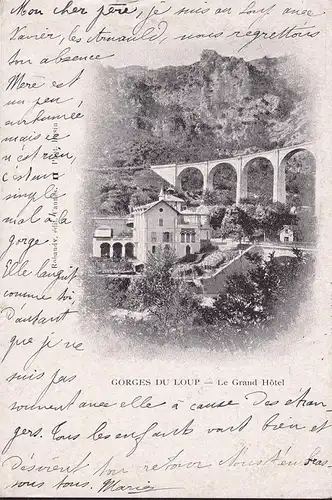 Mon cher père, je suis au Loup avec
Xavier, les Arnauld, nous regrettons
ton absence
Mère est
un peu
enrhumée
mais ce
n'est rien,
c'est un
simple
mal à la
gorge
Elle languit
comme toi
D'autant
que je ne
suis pas
souvent avec elle à cause des étran
gers. Tous les enfants vont bien et
Désirent ton retour
tous. Marie
GORGES DU LOUP — Le Grand Hôtel